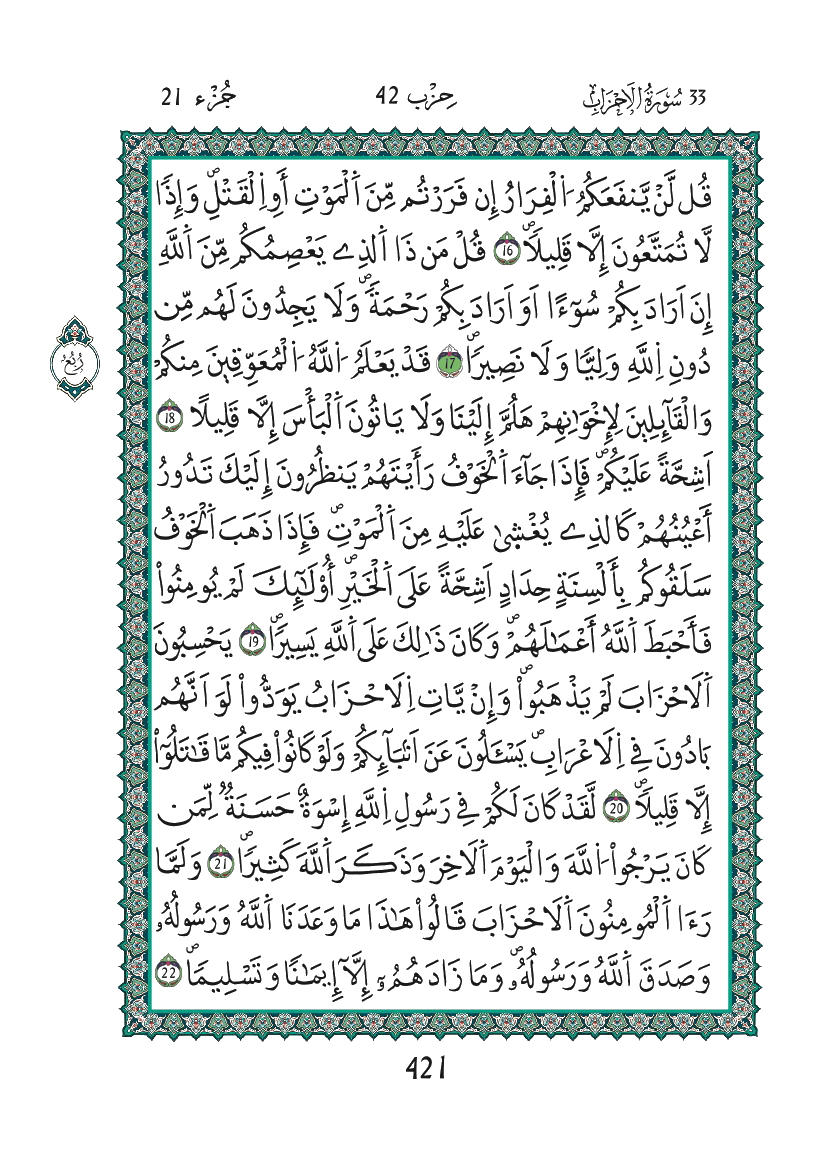 33 سُورَةُ الاَحْزَابِ حِزْب 42 جُزْء 21
قُل لَّنْ يَّنفَعَكُمُ اُ۬لْفِرَارُ إِن فَرَرْتُم مِّنَ اَ۬لْمَوْتِ أَوِ اِ۬لْقَتْلِۖ وَإِذاٗ
لَّا تُمَتَّعُونَ إِلَّا قَلِيلاٗۖ 16 قُلْ مَن ذَا اَ۬لذِے يَعْصِمُكُم مِّنَ اَ۬للَّهِ
إِنَ اَرَادَ بِكُمْ سُوٓءاً اَوَ اَرَادَ بِكُمْ رَحْمَةٗۖ وَلَا يَجِدُونَ لَهُم مِّن
دُونِ اِ۬للَّهِ وَلِيّاٗ وَلَا نَصِيراٗۖ 17 قَدْ يَعْلَمُ اُ۬للَّهُ اُ۬لْمُعَوِّقِينَ مِنكُمْ
وَالْقَآئِلِينَ لِإِخْوَٰنِهِمْ هَلُمَّ إِلَيْنَا وَلَا يَاتُونَ اَ۬لْبَأْسَ إِلَّا قَلِيلاً 18
اَشِحَّةً عَلَيْكُمْۖ فَإِذَا جَآءَ اَ۬لْخَوْفُ رَأَيْتَهُمْ يَنظُرُونَ إِلَيْكَ تَدُورُ
أَعْيُنُهُمْ كَالذِے يُغْش۪يٰ عَلَيْهِ مِنَ اَ۬لْمَوْتِۖ فَإِذَا ذَهَبَ اَ۬لْخَوْفُ
سَلَقُوكُم بِأَلْسِنَةٍ حِدَادٍ اَشِحَّةً عَلَى اَ۬لْخَيْرِۖ أُوْلَٰٓئِكَ لَمْ يُومِنُواْ
فَأَحْبَطَ اَ۬للَّهُ أَعْمَٰلَهُمْۖ وَكَانَ ذَٰلِكَ عَلَى اَ۬للَّهِ يَسِيراٗۖ 19 يَحْسِبُونَ
اَ۬لَاحْزَابَ لَمْ يَذْهَبُواْۖ وَإِنْ يَّاتِ اِ۬لَاحْزَابُ يَوَدُّواْ لَوَ اَنَّهُم
بَادُونَ فِے اِ۬لَاعْرَابِۖ يَسْـَٔلُونَ عَنَ اَنۢبَآئِكُمْ وَلَوْ كَانُواْ فِيكُم مَّا قَٰتَلُوٓاْ
إِلَّا قَلِيلاٗۖ 20 لَّقَدْ كَانَ لَكُمْ فِے رَسُولِ اِ۬للَّهِ إِسْوَةٌ حَسَنَةٞ لِّمَن
كَانَ يَرْجُواْ اُ۬للَّهَ وَالْيَوْمَ اَ۬لَاخِرَ وَذَكَرَ اَ۬للَّهَ كَثِيراٗۖ 21 وَلَمَّا
رَءَا اَ۬لْمُومِنُونَ اَ۬لَاحْزَابَ قَالُواْ هَٰذَا مَا وَعَدَنَا اَ۬للَّهُ وَرَسُولُهُۥ
وَصَدَقَ اَ۬للَّهُ وَرَسُولُهُۥۖ وَمَا زَادَهُمُۥٓ إِلَّآ إِيمَٰناٗ وَتَسْلِيماٗۖ 22
رُبُع
421